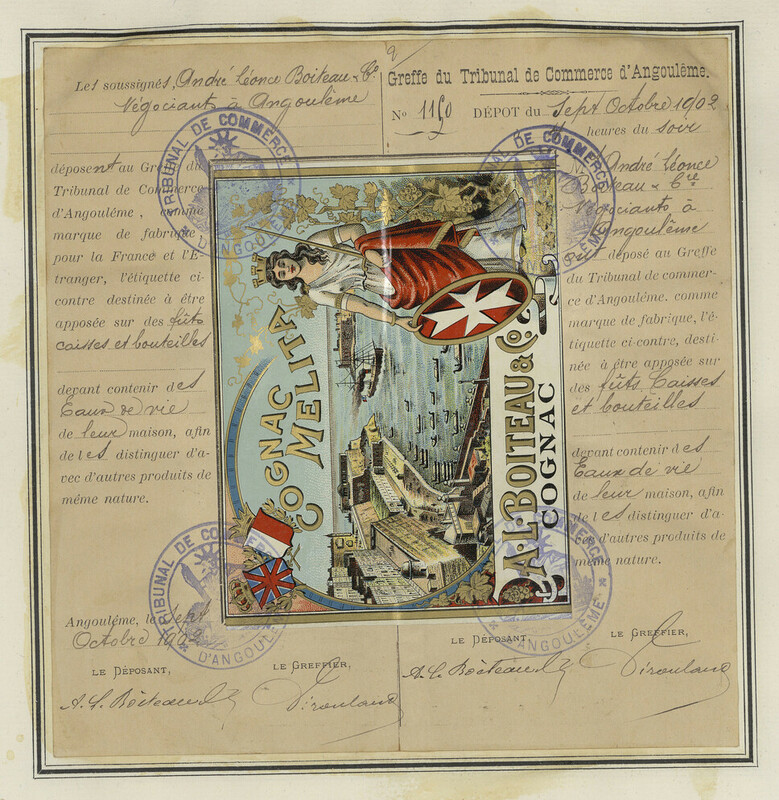 Les soussignés, André Léonce Boiteau & Cie
Négociants à Angoulême
déposent au Greffe du
Tribunal de Commerce
d'Angoulême, comme
marque de fabrique
pour la France et l'É-
tranger, l'étiquette ci-
contre destinée à être
apposée sur des fûts
caisses et bouteilles
devant contenir des
Eaux de vie
de leur maison, afin
de les distinguer d'a-
vec d'autres produits de
même nature.
Angoulême, le sept
Octobre 1902
LE DÉPOSANT,
LE GREFFIER,
A. L. Boiteau & Cie
2
Greffe du Tribunal de Commerce d'Angoulême.
No 1150 DÉPOT du Sept Octobre 1902
heures du soir
André Léonce
Boiteau & Cie
Négociants à
Angoulême
ont déposé au Greffe
du Tribunal de commer-
ce d'Angoulême. comme
marque de fabrique, l'é-
tiquette ci-contre, desti-
née à être apposée sur
des fûts Caisses
et bouteilles
devant contenir des
Eaux de vie
de leur maison, afin
de les distinguer d'a-
vec d'autres produits de
même nature.
LE DÉPOSANT,
LE GREFFIER,
A. L. Boiteau & Cie
COGNAC
MELITA
A.L. BOITEAU & Co.
COGNAC
TRIBUNAL DE COMMERCE
D'ANGOULÊME
TRIBUNAL DE COMMERCE
D'ANGOULÊME
TRIBUNAL DE COMMERCE
D'ANGOULÊME
TRIBUNAL DE COMMERCE
D'ANGOULÊME